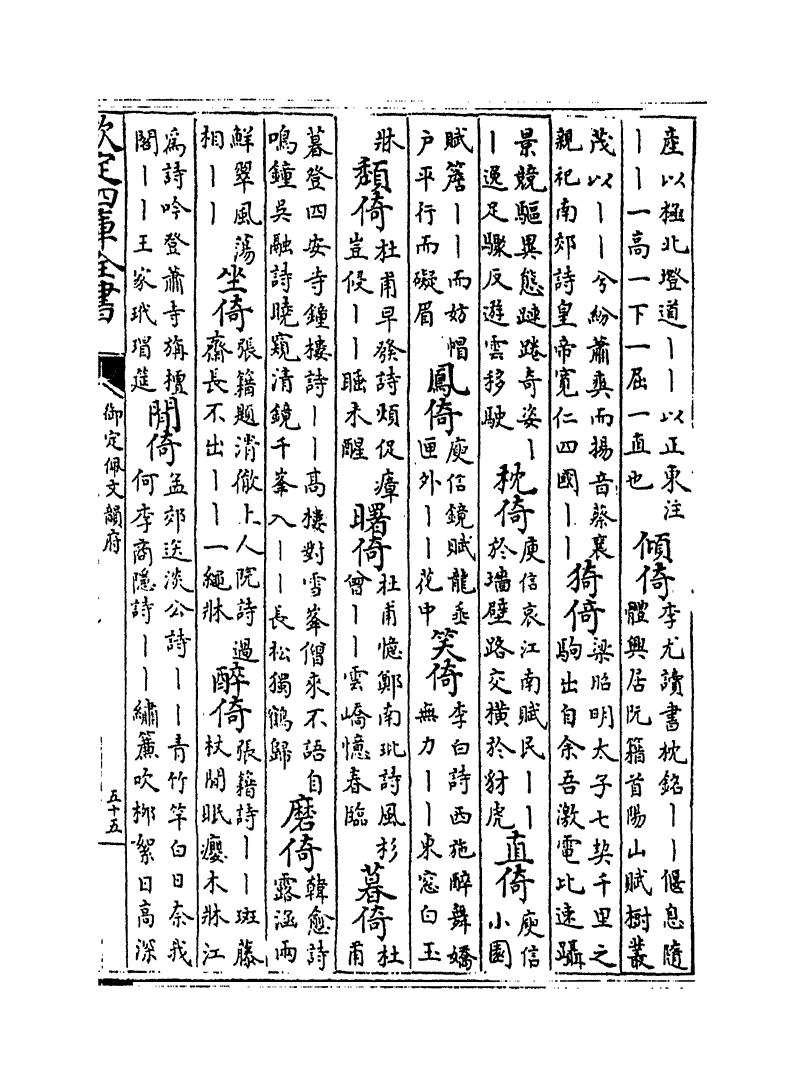 產以極北墱道丨丨以正東注
丨丨一高一下一屈一直也
傾倚
李尤讀書枕銘丨丨偃息隨
體興居阮籍首陽山賦樹叢
茂以丨丨兮紛蕭爽而揚音蔡襄
親祀南郊詩皇帝寛仁四國丨丨
猗倚
梁昭明太子七契千里之
駒出自余吾激電比速躡
景競驅異態踡奇姿丨
丨逸足驟反遊雲移駛
枕倚
庾信哀江南賦民丨丨
於墻壁路交橫於豺虎
直倚
庾信
小園
賦簷丨丨而妨帽
户平行而礙眉
鳳倚
庾信鏡賦龍垂
匣外丨丨花中
笑倚
李白詩西施醉舞嬌
無力丨丨東窓白玉
牀
頽倚
杜甫早發詩煩促瘴
豈侵丨丨睡未醒
曙倚
杜甫憶鄭南玭詩風杉
曾丨丨雲嶠憶春臨
暮倚
杜
甫
暮登四安寺鐘樓詩丨丨高樓對雪峯僧來不語自
鳴鐘吳融詩曉窺清鏡千峯入丨丨長松獨鶴歸
磨倚
韓愈詩
露涵兩
鮮翠風蕩
相丨丨
坐倚
張籍題清徹上人院詩過
齋長不出丨丨一繩牀
醉倚
張籍詩丨丨斑藤
杖閒眠癭木牀江
爲詩吟登蕭寺旃檀
閣丨丨王家玳瑁筵
閒倚
孟郊送淡公詩丨丨青竹竿白日奈我
何李商隱詩丨丨繡簾吹柳絮日高深
欽定四庫全書
御定佩文韻府
五十五